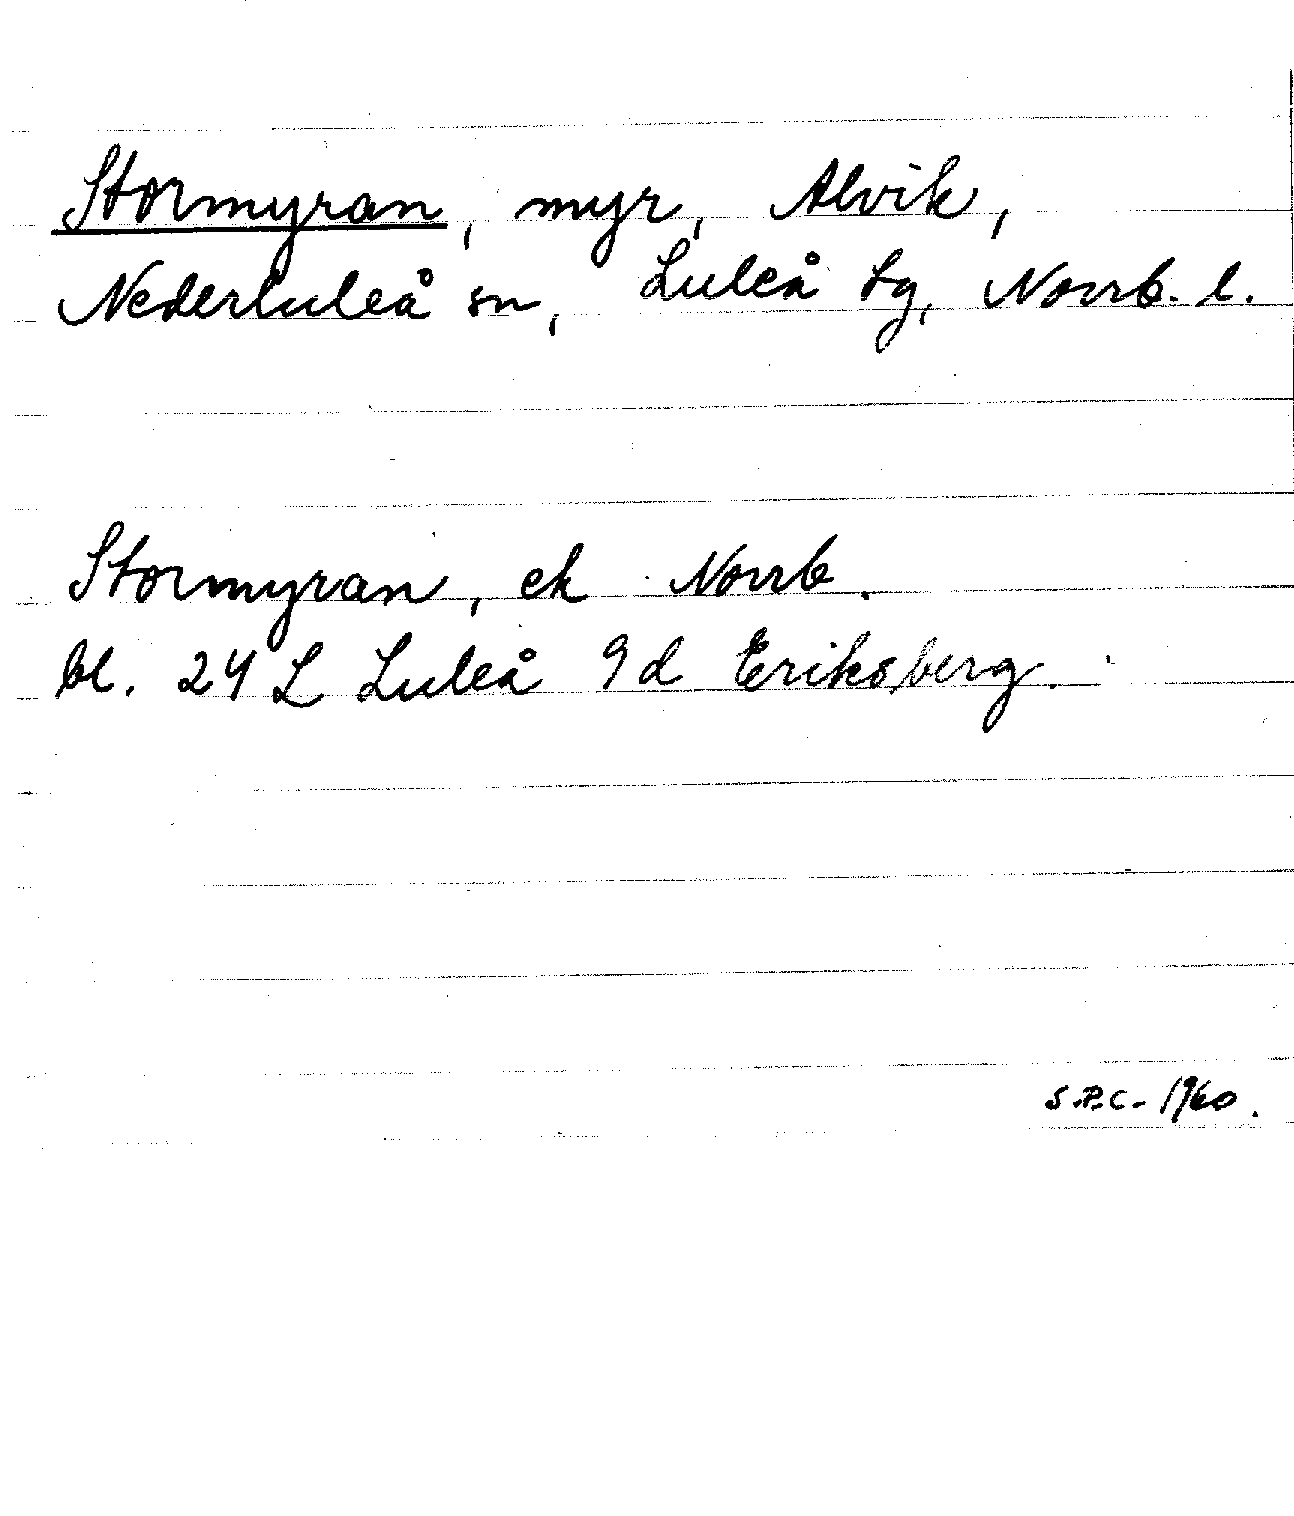 Stormyran, myr, Alvik,
Nederluleå sn, Luleå tg, Norrb. l.
Stormyran, ek Norrb.
bl. 24 L Luleå 9d Eriksberg.
S.P.C. - 1960.